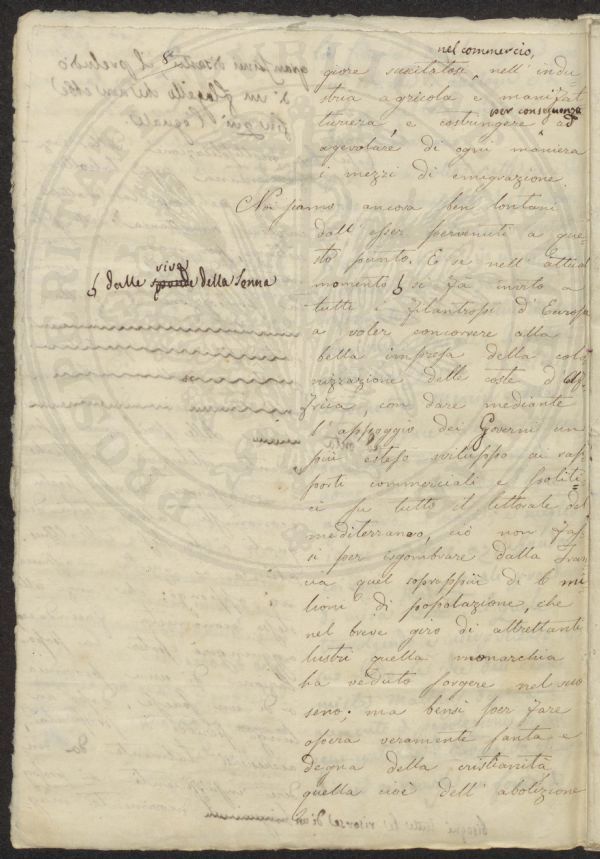 nel commercio,
giore suscitatosi nell' indu
stria agricola e manifat
per conseguenza
turiera, e costringere ad
agevolare di ogni maniera
i mezzi di emigrazione.
Noi siamo ancora ben lontani
dall' esser pervenuti a que=
sto punto. E se nell' attual
riva
dalle sponde della Senna
momento si fa invito a
tutti i filantropi d' Europa
a voler concorrere alla
bella impresa della colo
nizzazione delle coste d' Af
frica, con dare mediante
l' appoggio dei Governi un
più esteso sviluppo ai rap
porti commerciali e politi=
ci su tutto il littorale del
mediterraneo, ciò non fas
si per isgombrare dalla Fran
cia quel soprappiù di 6 mi
lioni di popolazione, che
nel breve giro di altrettanti
lustri quella monarchia
ha veduto sorgere nel suo
seno; ma bensì per fare
opera veramente santa e
degna della cristianità
quella cioè dell' abolizione